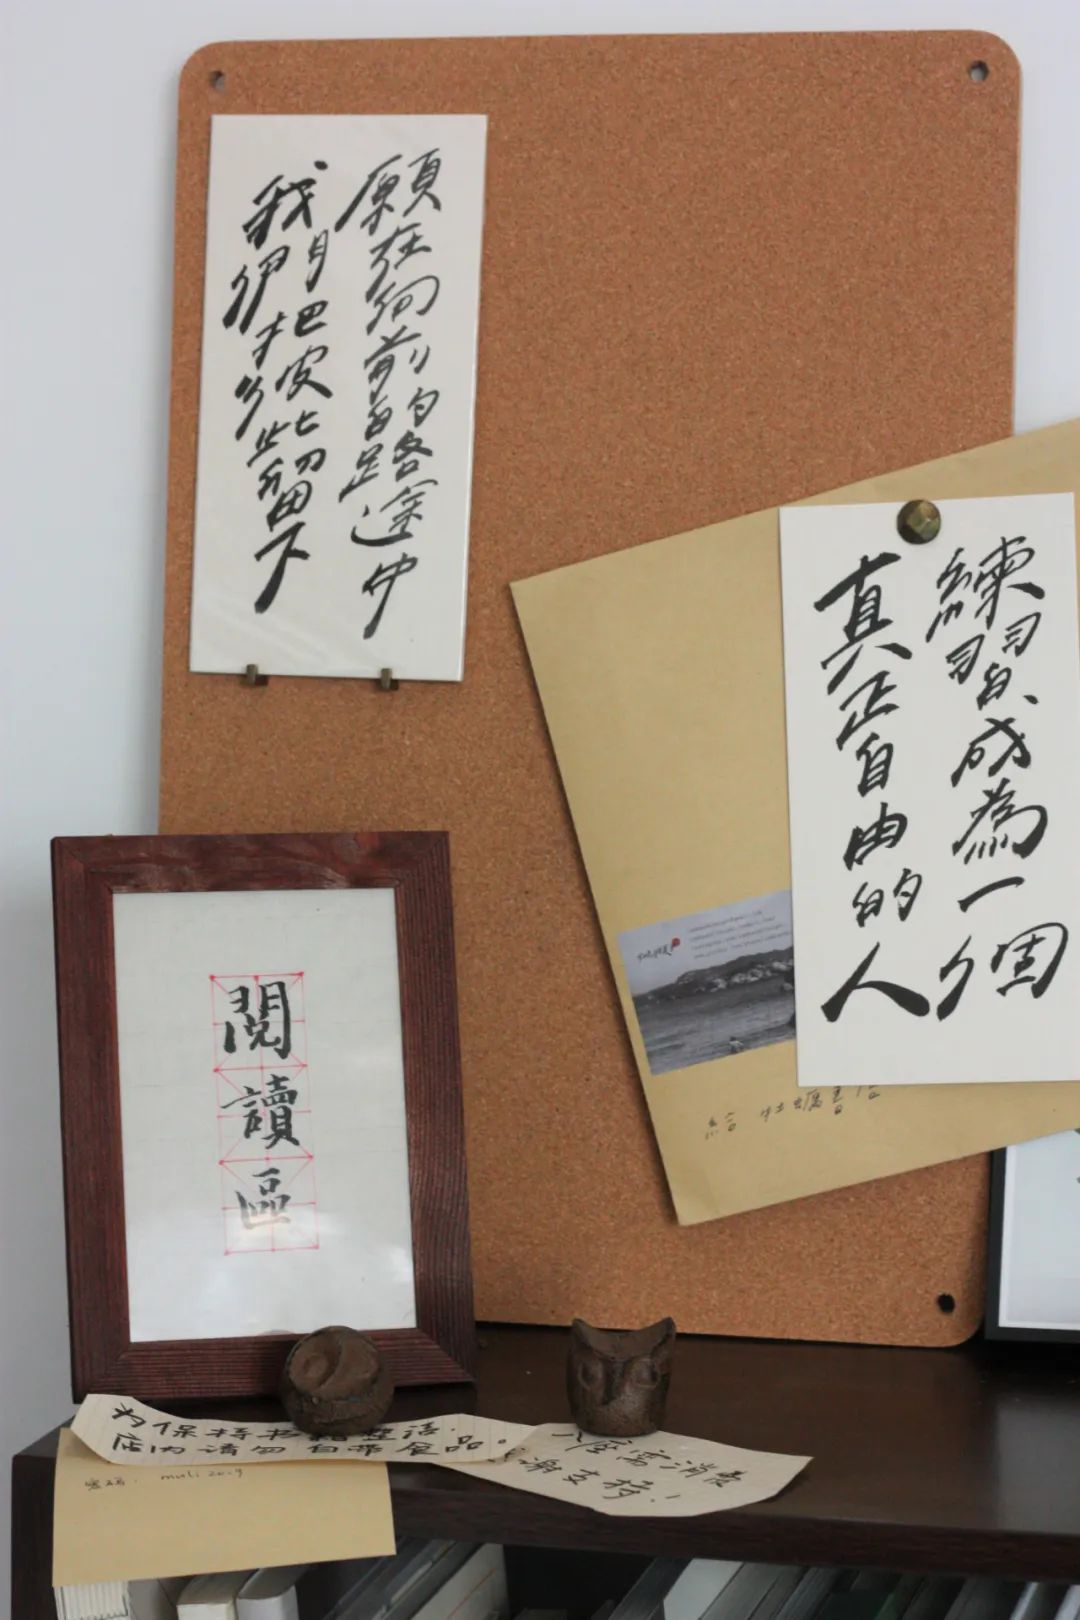 願在向前的路途中
我們把彼此留下
練習、成為一個
真正自由的人
給 牡蠣書店
閱讀區
为保持书籍整洁,
店内请勿自带食品。
入座需消费
谢支持!!
密码: muli2019